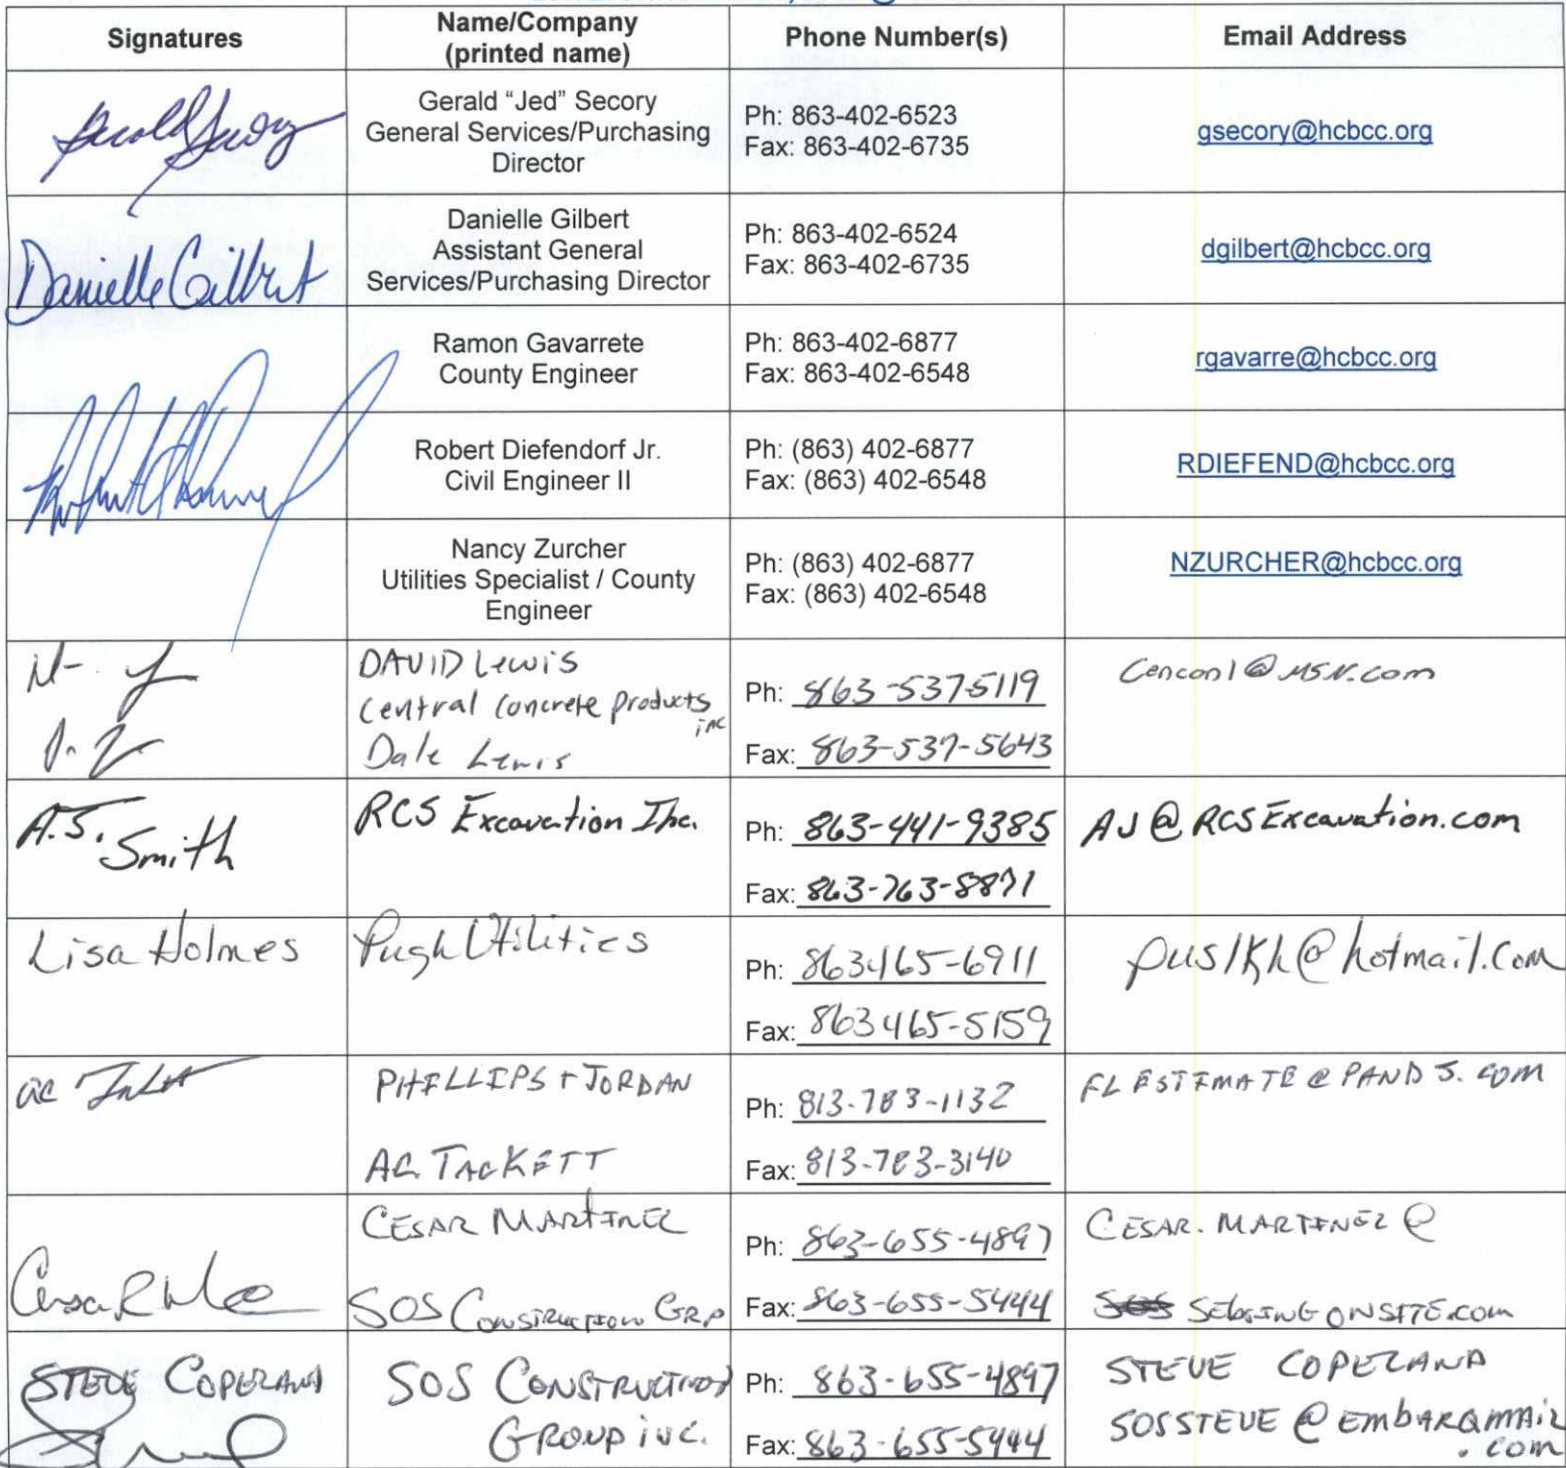 Signatures
Name/Company
(printed name)
Phone Number(s)
Email Address
Gerald "Jed" Secory
General Services/Purchasing
Director
Ph: 863-402-6523
Fax: 863-402-6735
gsecory@hcbcc.org
Danielle Gilbert
Danielle Gilbert
Assistant General
Services/Purchasing Director
Ph: 863-402-6524
Fax: 863-402-6735
dgilbert@hcbcc.org
Ramon Gavarrete
County Engineer
Ph: 863-402-6877
Fax: 863-402-6548
rgavarre@hcbcc.org
Robert Diefendorf Jr.
Civil Engineer II
Ph: (863) 402-6877
Fax: (863) 402-6548
RDIEFEND@hcbcc.org
Nancy Zurcher
Utilities Specialist / County
Engineer
Ph: (863) 402-6877
Fax: (863) 402-6548
NZURCHER@hcbcc.org
DAVID Lewis
Central Concrete Products
inc
Dale Lewis
Ph: 863-537-5119
Fax: 863-537-5643
Cencon1@MSN.com
A.J. Smith
RCS Excavation Inc.
Ph: 863-441-9385
Fax: 863-763-8871
AJ@RCSExcavation.com
Lisa Holmes
Pugh Utilities
Ph: 863465-6911
Fax: 863465-5159
puslkh@hotmail.com
PHILLIPS + JORDAN
AC. TACKETT
Ph: 813-783-1132
Fax: 813-783-3140
FLESTIMATE@PANDJ.COM
CESAR MARTINEZ
SOS CONSTRUCTION GRP
Ph: 863-655-4897
Fax: 863-655-5444
CESAR.MARTINEZ@
SEBRINGONSITE.com
STEVE COPELAND
SOS CONSTRUCTION
GROUP inc.
Ph: 863-655-4897
Fax: 863-655-5444
STEVE COPELAND
SOSSTEVE@EMBARQMAIL
.com